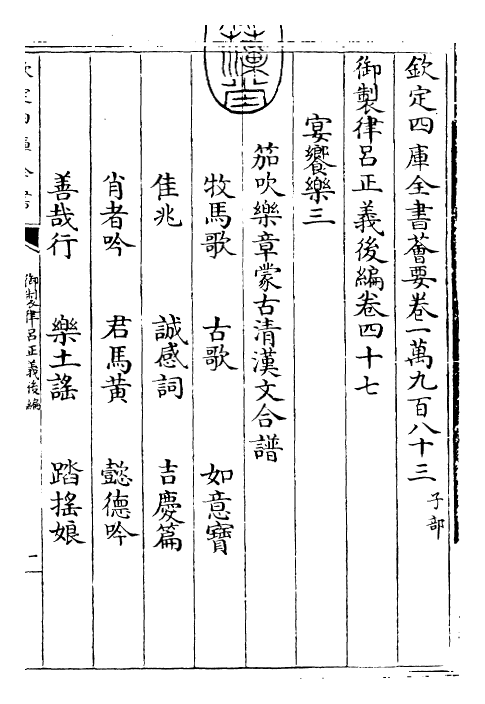 欽定四庫全書薈要卷一萬九百八十三 子部
御製律呂正義後編卷四十七
宴饗樂三
笳吹樂章蒙古清漢文合譜
牧馬歌 古歌 如意寶
佳兆 誠感詞 吉慶篇
肖者吟 君馬黃 懿德吟
善哉行 樂土謠 踏搖娘
欽定四庫全書
御製律呂正義後編
一